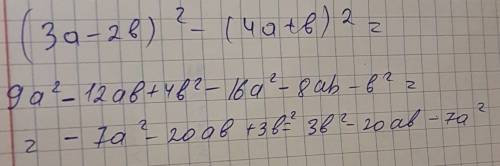 (3a-2в)² - (4a+в)² =
9a² - 12aв + 4в² - 16a² - 8ab - в² =
= - 7a² - 20aв + 3в² = 3в² - 20aв - 7a²